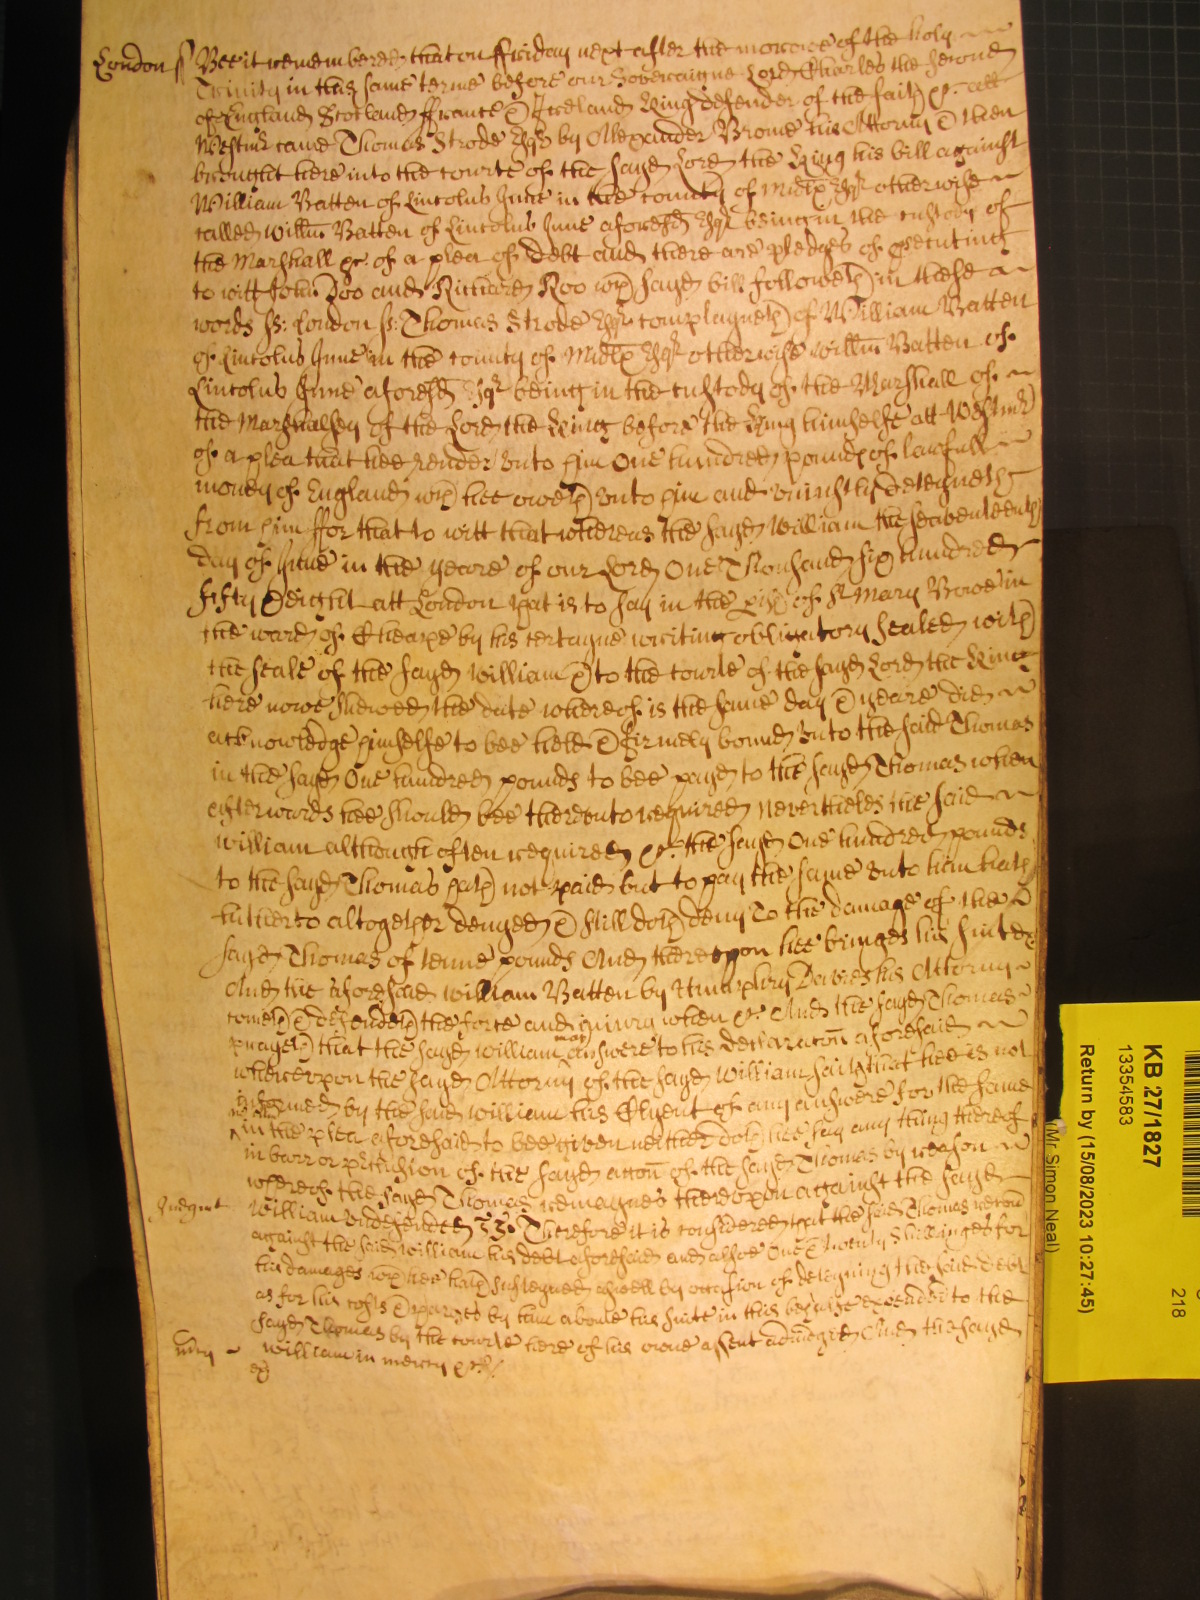 London ss Bee it remembered that on ffriday next after the morrowe of the holy
Trinity in this same terme before our Soveraigne Lord Charles the second
of England Scotland ffrance & Ireland King defender of the faith &c. att
Westmr came Thomas Strode Esqr by Allexander Brome his Attorny & then
brought here into the courte of the sayd Lord the King his bill against
William Batten of Lincolns Inne in the county of Midlx Esqr otherwise
called Willm Batten of Lincolns Inne aforesd Esqr being in the custody of
the Marshall &c. of a plea of debt and there are pledges of prsecuting
to witt John Doo and Richard Roo wch sayd bill followeth in these
words ss: London ss: Thomas Strode Esqr complayneth of William Batten
of Lincolns Inne in the county of Midlx Esqr otherwise Willm Batten of
Lincolns Inne aforesd Esqr being in the custody of the Marshall of
the Marshalsey of the Lord the King before the King himselfe att Westmr
of a plea that hee render unto him One hundred pounds of lawfull
money of England wch hee oweth unto him and uniustly deteyneth
from him ffor that to witt that whereas the sayd William the seaventeenth
day of June in the yeare of our Lord One Thousand six hundred
fifty & eight att London that is to say in the prsh of St Mary Bowe in
the ward of Cheape by his certayne writing obligatory sealed with
the seale of the sayd William & to the courte of the sayd Lord the King
here nowe shewed the date whereof is the same day & yeare did
acknowledge himselfe to bee held & firmely bound unto the said Thomas
in the sayd One hundred pounds to bee payd to the sayd Thomas when
afterwards hee should bee thereunto required Neverthelesse the said
William although often required &c. the sayd One hundred pounds
to the sayd Thomas hath not paid but to pay the same unto him hath
hitherto altogether denyed & still doth deny To the damage of the
sayd Thomas of tenne pounds And thereupon hee bringes his suite &c
And the aforesaid William Batten by Humphry Davies his Attorny
cometh & defendeth the force and iniury when &c. And the sayd Thomas
prayeth that the sayd William may answere to his declaracon aforesaid
whereupon the sayd Attorny of the sayd William saith that hee is not
informed by the said William his Clyent of any answere for the same
in the plea aforesaid to bee given neither doth hee say any thing thereof
in barr or preclusion of the sayd accon of the sayd Thomas by reason
whereof the sayd Thomas remaynes thereupon against the sayd
Judgmt William undefended &c. Therefore it is considered that the said Thomas recover
against the said William his debt aforesaid and alsoe One & twenty Shillinges for
his damages wch hee hath susteyned aswell by occasion of deteyning the said debt
as for his costs & charges by him aboute his suite in this behalfe expended to the
sayd Thomas by the courte here of his owne assent adiudged And the sayd
mcy William in mercy &c./
KB 27/1827
13354583
Return by (15/08/2023 10:27:45)
(Mr Simon Neal)
218